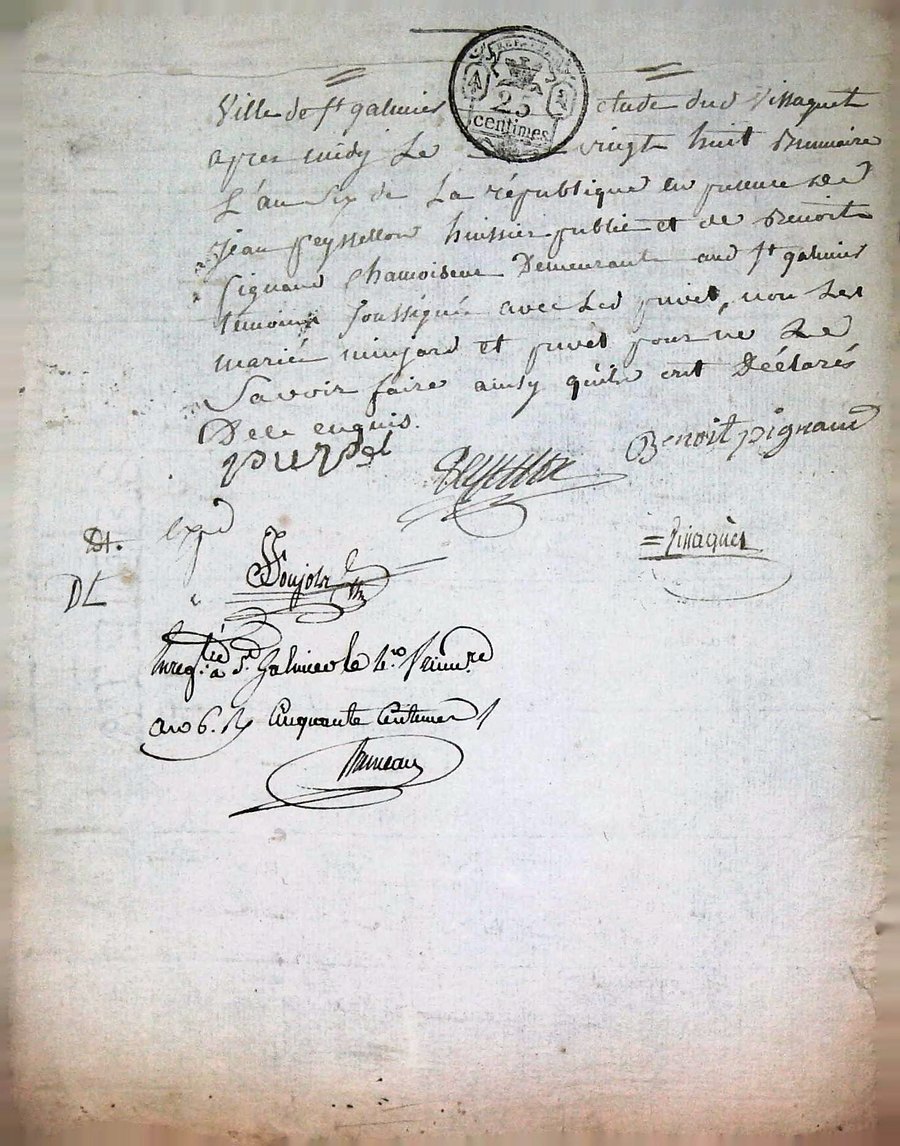 Ville de St galmier etude du d Vissaguet
apres midy Le vingt huit Brumaire
L'an Six de La république en presence De
Jean peyssellon huissier public et de Benoit
pignand Chamoiseur Demeurant aud St galmier
temoins soussignés avec Led puvel, non Les
mariés minjard et puvel pour ne Le
Savoir faire ainsy quils ont Déclarés
De ce enquis.
puvel
Benoit pignand
25
centimes
expd
Dt.
DL
= Vissaguet
Enregtré à St Galmier le 1er frimaire
an 6. Rçu Cinquante Centimes